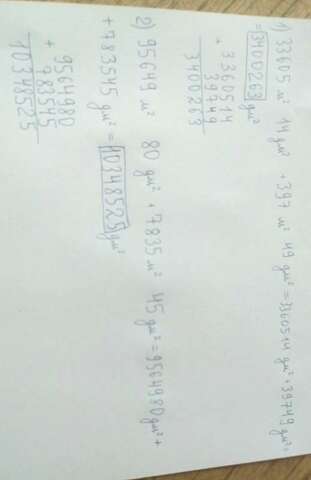 1) 33605 м² 14 дм² + 397 м² 49 дм² = 3360514 дм² + 39749 дм² =
= 3400263 дм²
+ 3360514
39749
3400263
2) 95649 м² 80 дм² + 7835 м² 45 дм² = 9564980 дм² +
+ 783545 дм² = 10348525 дм²
+ 9564980
783545
10348525